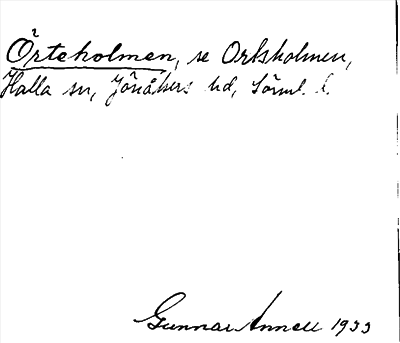 Örteholmen, se Ortsholmen,
Halla sn, Jönåkers hd, Sörml. l.
Gunnar Annell 1933